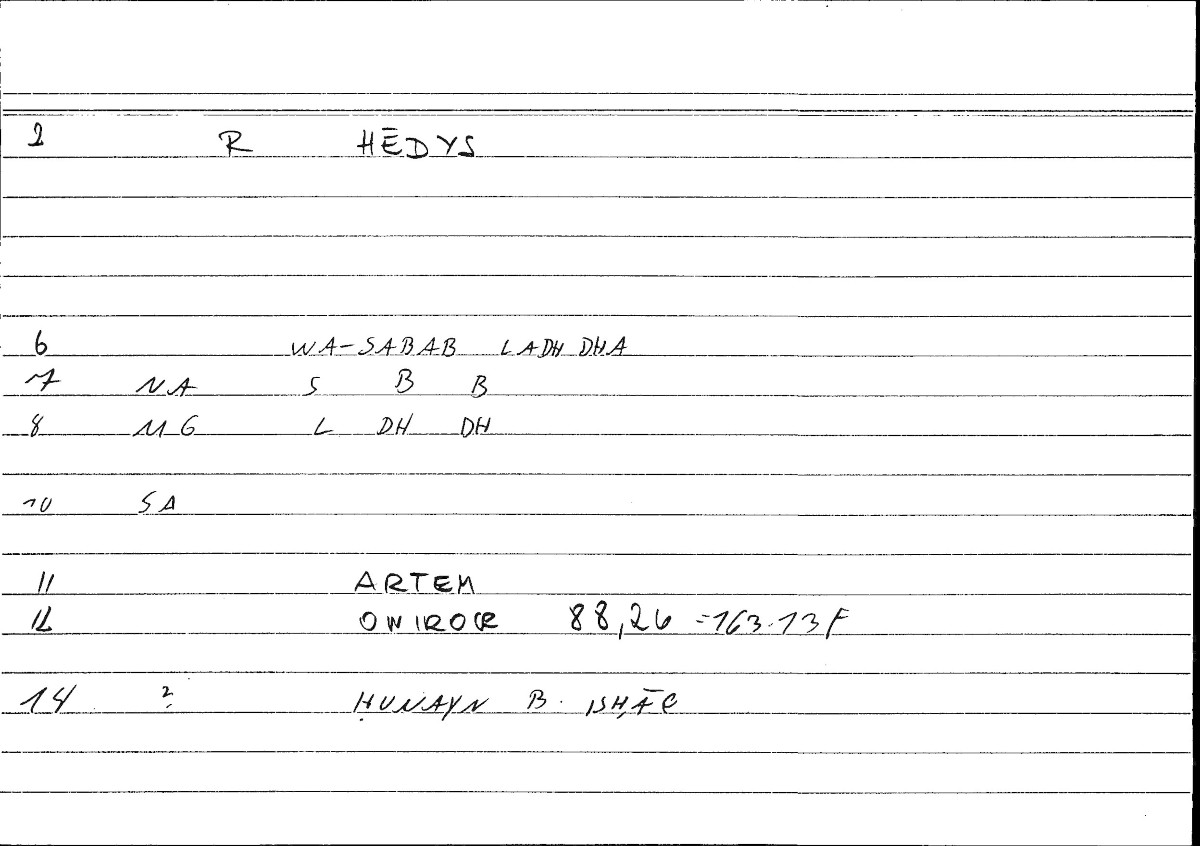 2 R HĒDYS
6 WA-SABAB LADHDHA
7 NA S B B
8 MG L DH DH
10 SA
11 ARTEM
12 ONIROCR 88,26 =163.13F
14 ? ḤUNAYN B. ISḤĀC